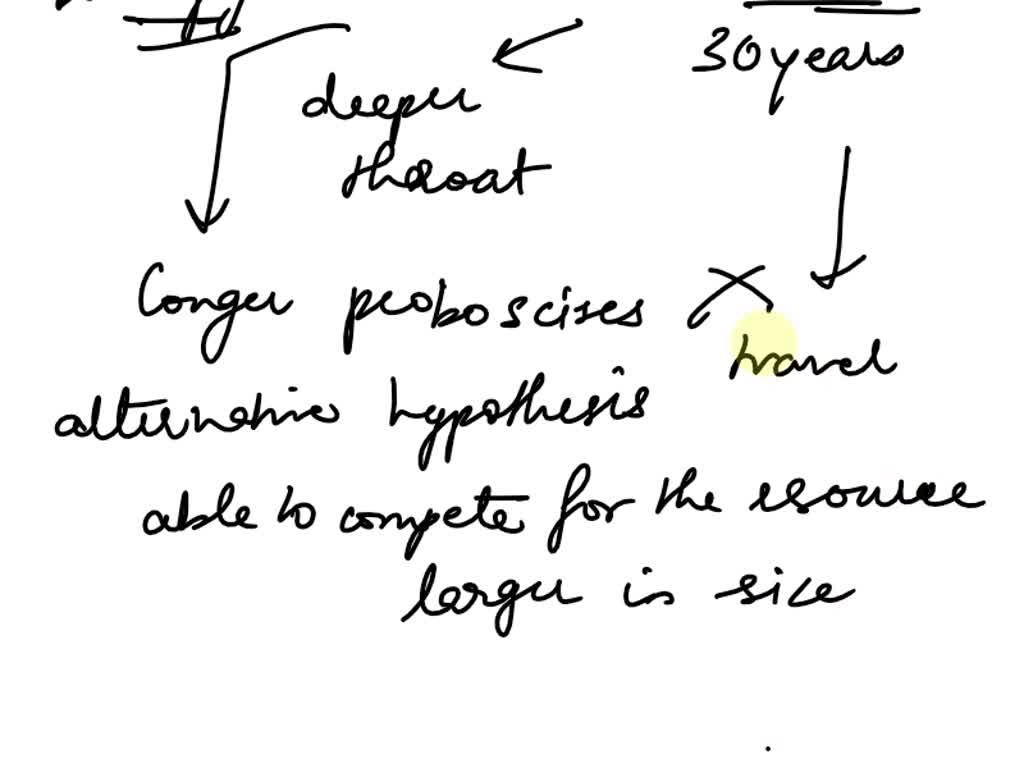 30 years
deeper
throat
longer proboscises
travel
alternative hypothesis
able to compete for the resource
larger in size